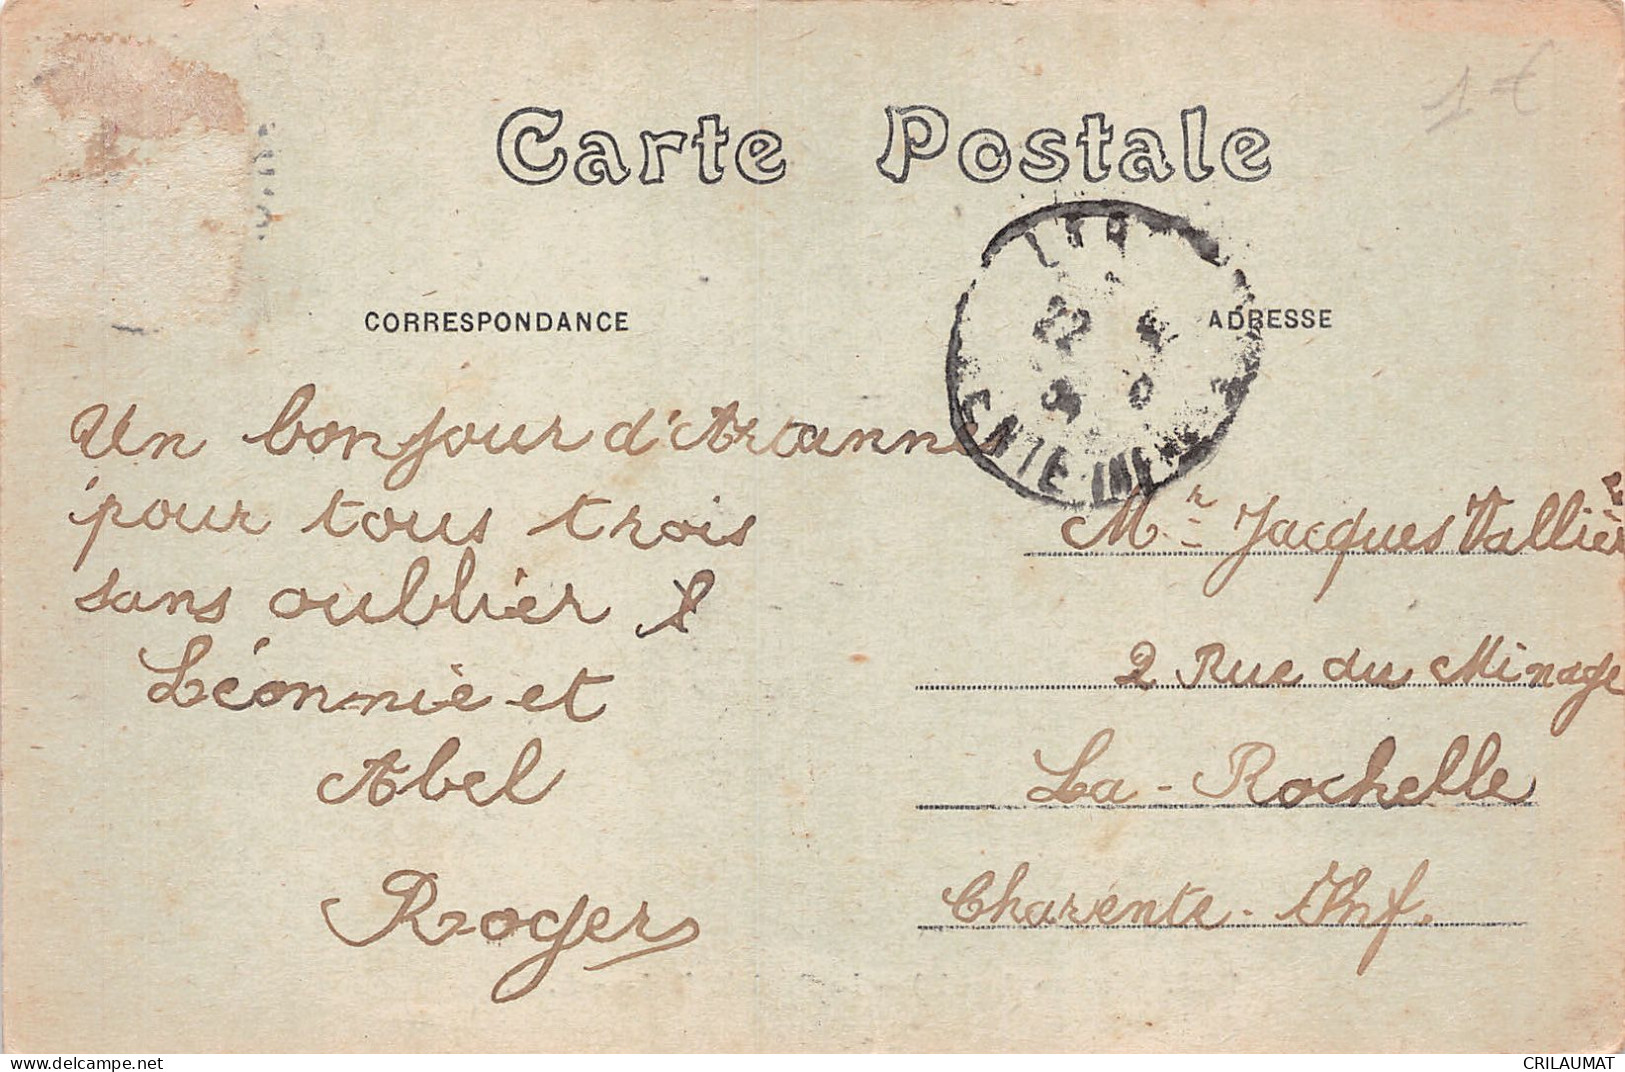 1€
Carte Postale
CORRESPONDANCE
ADRESSE
22
CHTE INF
Un bonjour d'Artannes
pour tous trois
sans oublier
Léonnie et
Abel
Roger
Mr Jacques Vallière
2 Rue du Minage
La-Rochelle
Charente-Inf.
CRILAUMAT